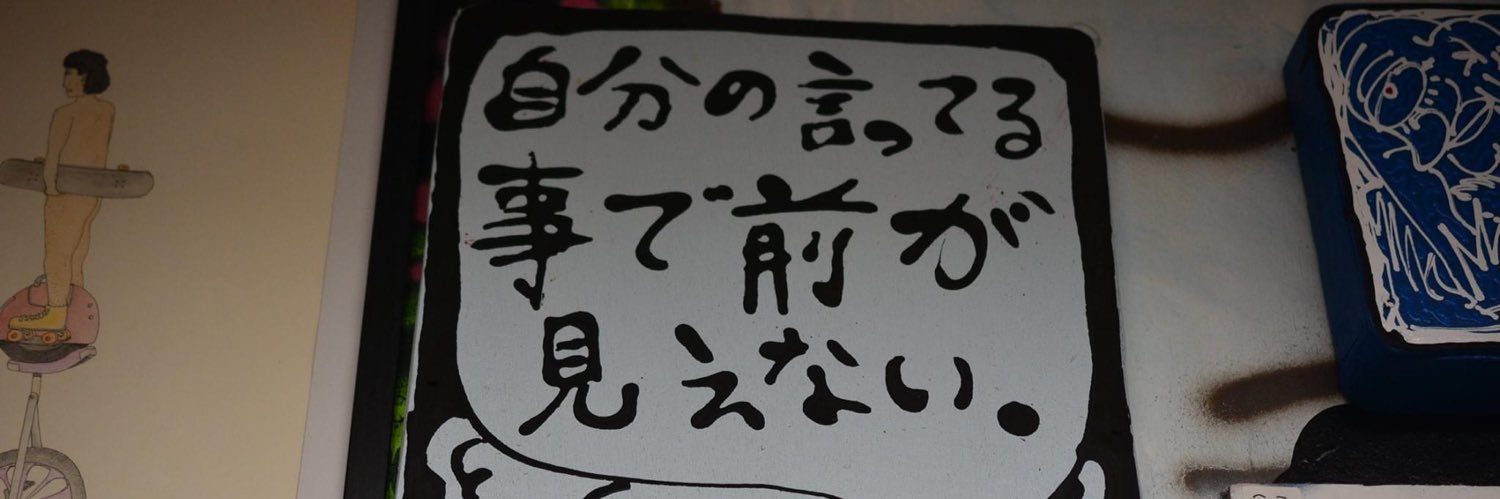 自分の言ってる
事で前が
見えない。